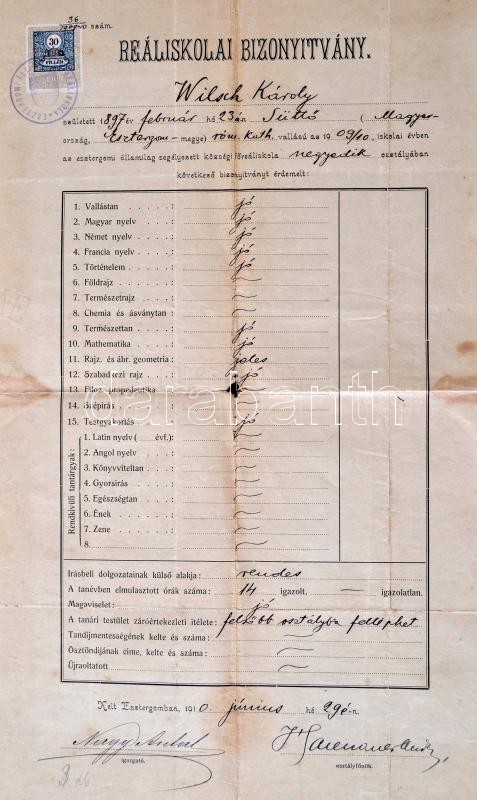 36
szám.
30
FILLÉR
REÁLISKOLAI BIZONYITVÁNY.
Wilsch Károly
született 1897 év február hó 23án Süttő ( Magyar-
ország, Esztergom-megye) róm. kath. vallású az 1909/10. iskolai évben
az esztergomi államilag segélyezett községi főreáliskola negyedik osztályában
következő bizonyitványt érdemelt:
1. Vallástan . . . . . : jó
2. Magyar nyelv . . . . : jó
3. Német nyelv . . . . : jó
4. Francia nyelv . . . . : jó
5. Történelem . . . . : jó
6. Földrajz . . . . . : ~
7. Természetrajz . . . . : ~
8. Chemia és ásványtan . : ~
9. Természettan . . . . : jó
10. Mathematika . . . . : jó
11. Rajz. és ábr. geometria : jeles
12. Szabadkezi rajz . . . : jó
13. Filoz. propedeutika
14. Szépirás
15. Testgyakorlás : jó
Rendkivüli tantárgyak:
1. Latin nyelv ( évf.): ~
2. Angol nyelv . . . : ~
3. Könyvviteltan . . . : ~
4. Gyorsirás . . . . : ~
5. Egészségtan . . . : ~
6. Ének . . . . . : ~
7. Zene . . . . . : ~
8. : ~
Irásbeli dolgozatainak külső alakja: rendes
A tanévben elmulasztott órák száma: 14 igazolt, — igazolatlan.
Magaviselet: jó
A tanári testület záróértekezleti itélete: felsőbb osztályba felléphet
Tandíjmentességének kelte és száma: ~
Ösztöndíjának cime, kelte és száma: ~
Újraoltatott: ~
Kelt Esztergomban, 1910. június hó 29é-n.
Nagy Antal
igazgató.
osztályfőnök.
darabanth